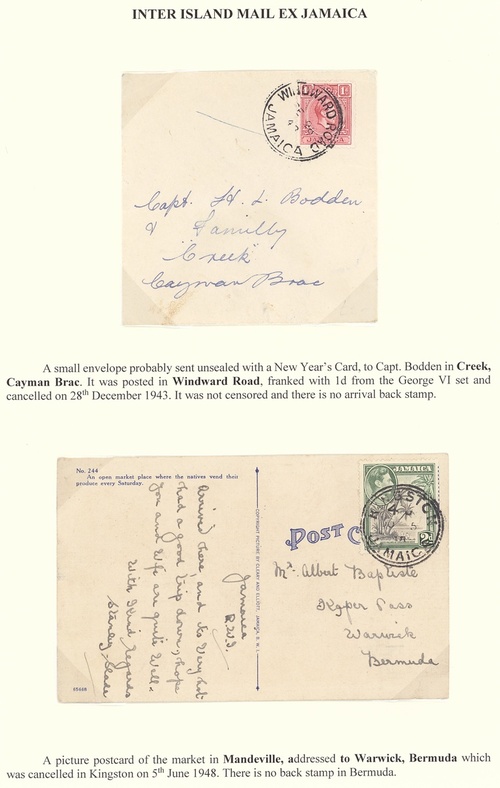 INTER ISLAND MAIL EX JAMAICA
WINDWARD ROAD
JAMAICA
1D
Capt. H. L. Bodden
& Familly
"Creek"
Cayman Brac
A small envelope probably sent unsealed with a New Year's Card, to Capt. Bodden in Creek,
Cayman Brac. It was posted in Windward Road, franked with 1d from the George VI set and
cancelled on 28th December 1943. It was not censored and there is no arrival back stamp.
No. 244
An open market place where the natives vend their
produce every Saturday.
Jamaica
B.W.I.
Arrived here, and its Very hot
had a good trip down, hope
you and Wife are quite Well.
With Kind Regards
Stanley
COPYRIGHT PICTURE BY CLEARY AND ELLIOTT, JAMAICA, B. W. I.
POST C
JAMAICA
KINGSTON
JAMAICA
Mr. Albert Baptiste
Pass
Warwick
Bermuda
A picture postcard of the market in Mandeville, addressed to Warwick, Bermuda which
was cancelled in Kingston on 5th June 1948. There is no back stamp in Bermuda.